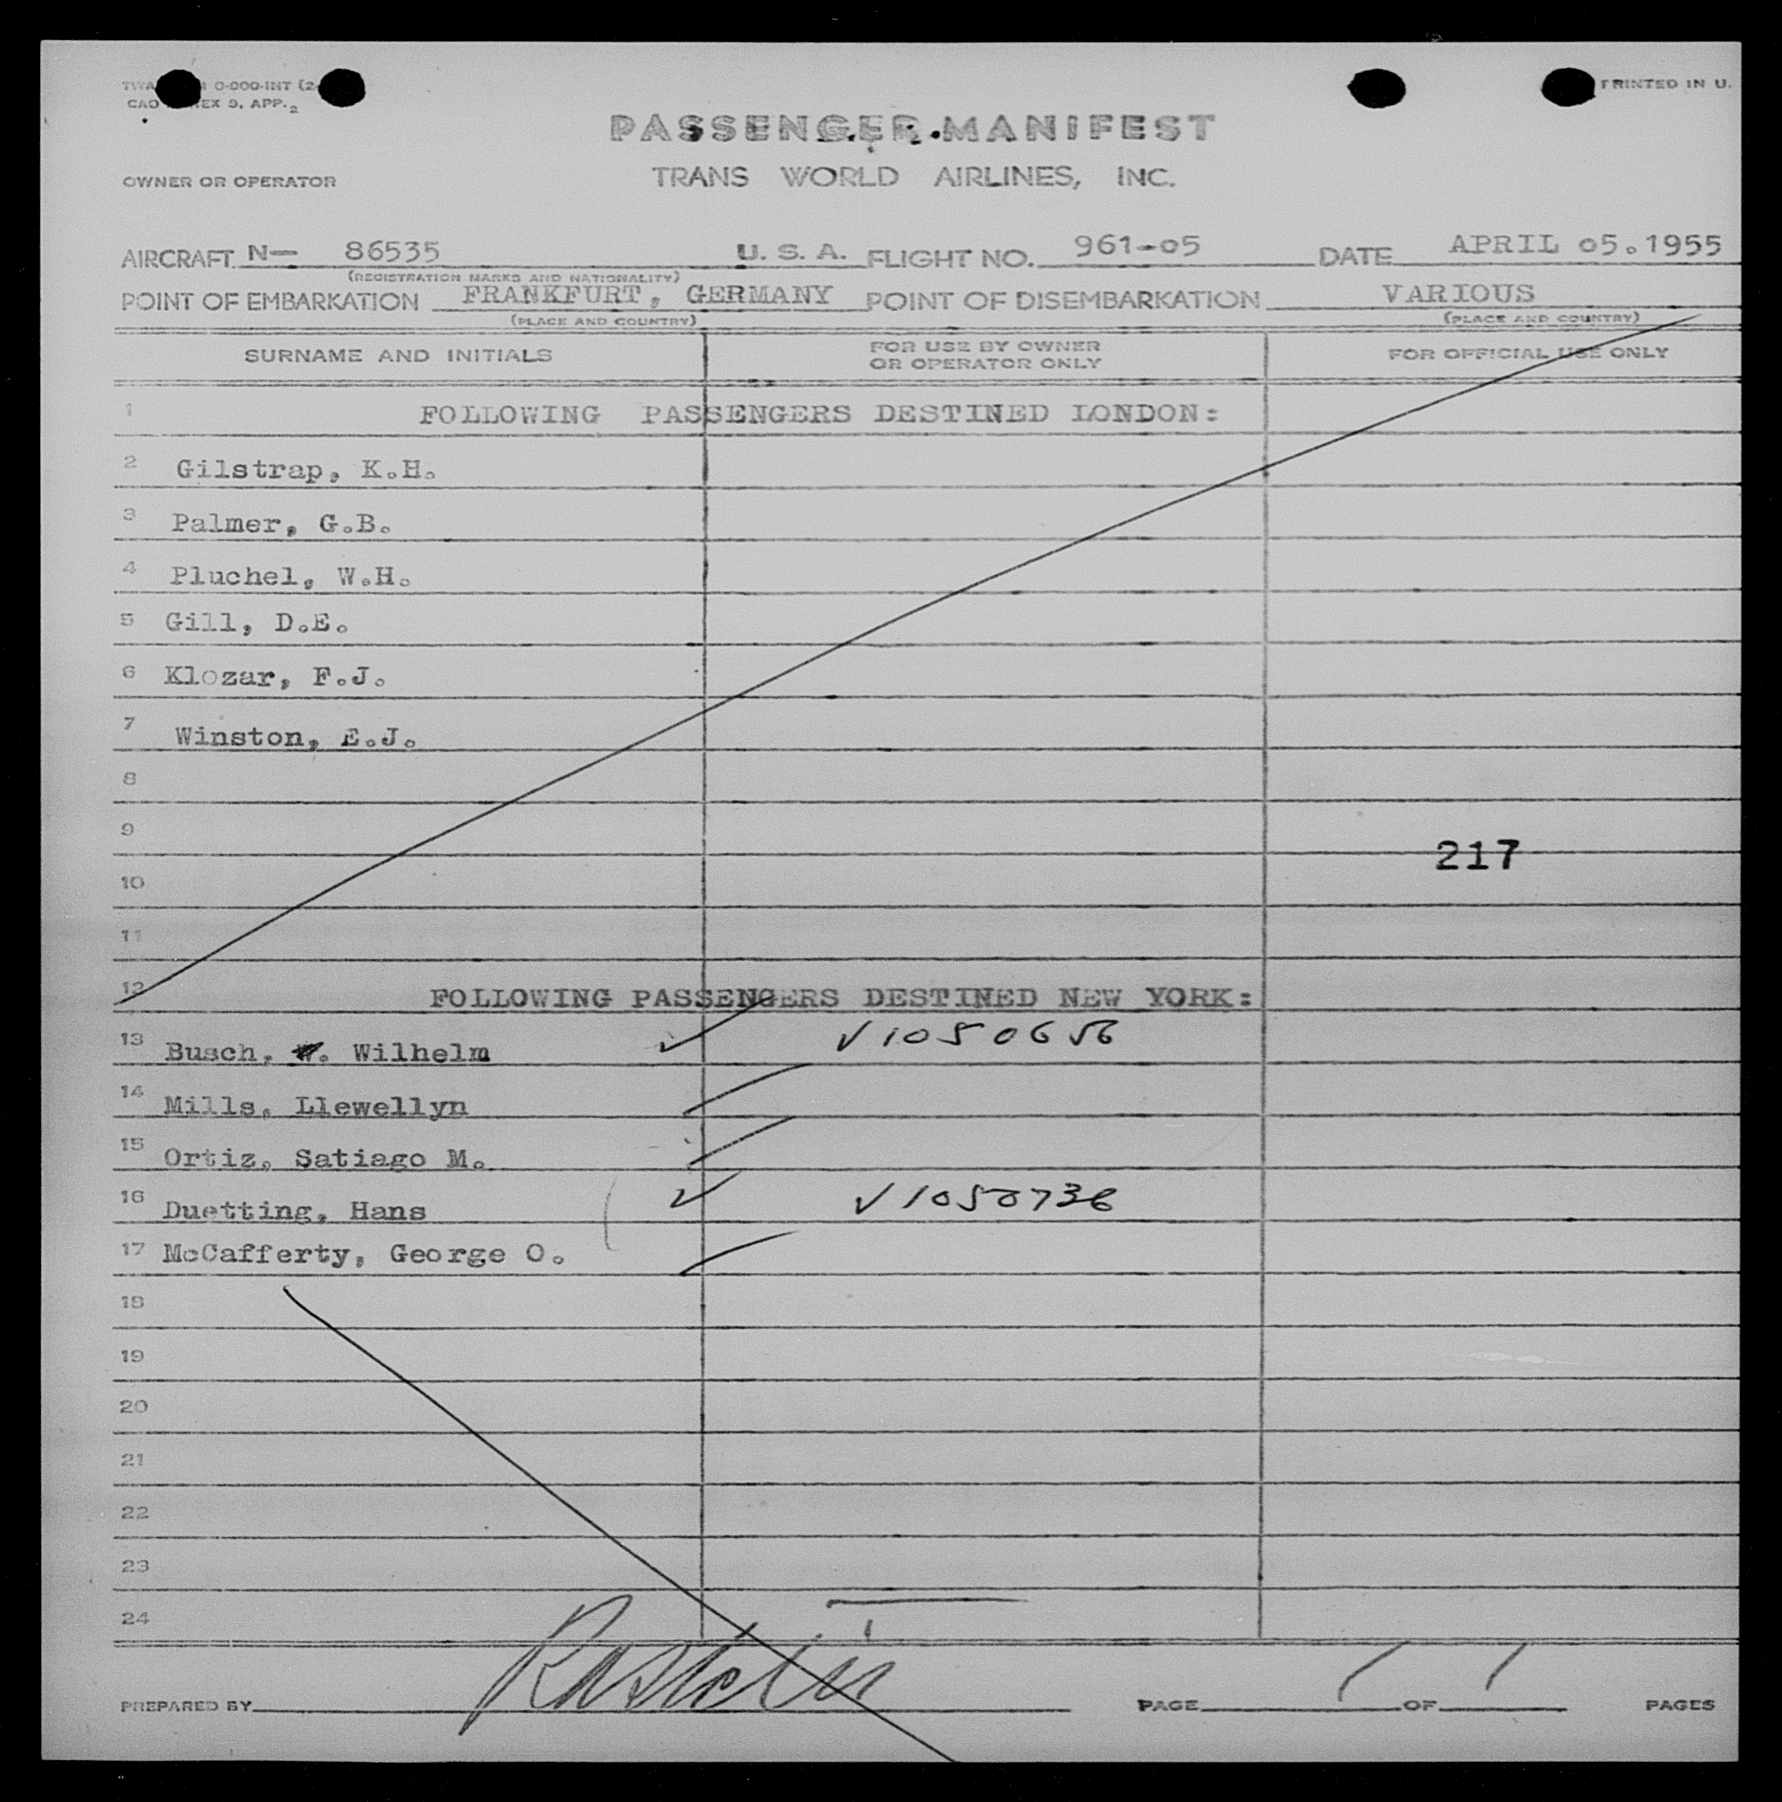 0-000-INT (2
CAO EX 9, APP. 2
PRINTED IN U.
PASSENGER MANIFEST
OWNER OR OPERATOR
TRANS WORLD AIRLINES, INC.
AIRCRAFT N- 86535 U. S. A. FLIGHT NO. 961-05 DATE APRIL 05.1955
(REGISTRATION MARKS AND NATIONALITY)
POINT OF EMBARKATION FRANKFURT, GERMANY POINT OF DISEMBARKATION VARIOUS
(PLACE AND COUNTRY) (PLACE AND COUNTRY)
SURNAME AND INITIALS FOR USE BY OWNER OR OPERATOR ONLY FOR OFFICIAL USE ONLY
1 FOLLOWING PASSENGERS DESTINED LONDON:
2 Gilstrap, K.H.
3 Palmer, G.B.
4 Pluchel, W.H.
5 Gill, D.E.
6 Klozar, F.J.
7 Winston, E.J.
8
9
217
10
11
12 FOLLOWING PASSENGERS DESTINED NEW YORK:
13 Busch, W. Wilhelm ✓ V1050656
14 Mills, Llewellyn
15 Ortiz, Satiago M.
16 Duetting, Hans ✓ V1050736
17 McCafferty, George O.
18
19
20
21
22
23
24
PREPARED BY PAGE 1 OF 1 PAGES